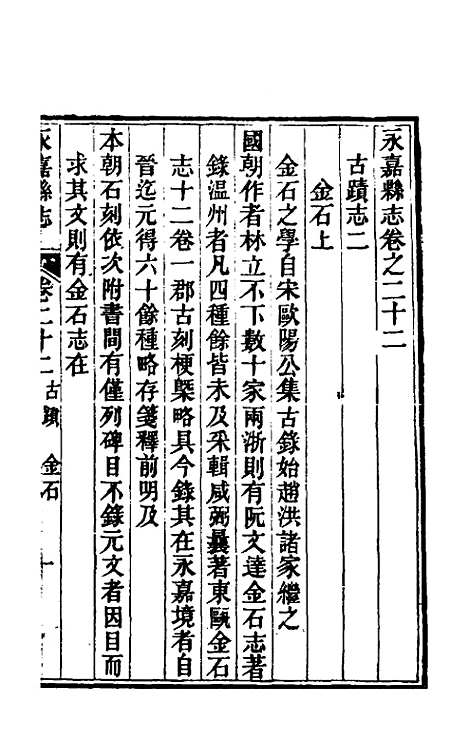 永嘉縣志卷之二十二
古蹟志二
金石上
金石之學自宋歐陽公集古錄始趙洪諸家繼之
國朝作者林立不下數十家兩浙則有阮文達金石志著
錄温州者凡四種餘皆未及采輯咸弼曩著東甌金石
志十二卷一郡古刻梗槩略具今錄其在永嘉境者自
晉迄元得六十餘種略存箋釋前明及
本朝石刻依次附書間有僅列碑目不錄元文者因目而
求其文則有金石志在
永嘉縣志 卷二十二 古蹟 金石 一